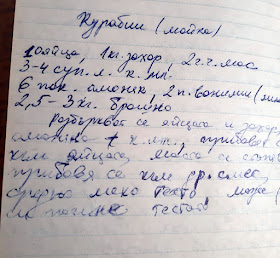 Курабии (майка)
10 яйца, 1 кг. захар, 2 ч.ч. мас
3-4 суп. л. к. мл.
6 пак. амоняк, 2 п. ванилии
2,5 - 3 кг. брашно
Разбъркват се яйцата и захар
амоняка + к. мл., прибавя се
към яйцата, маста се
прибавя се към др. смес,
средно меко тесто може
тестото